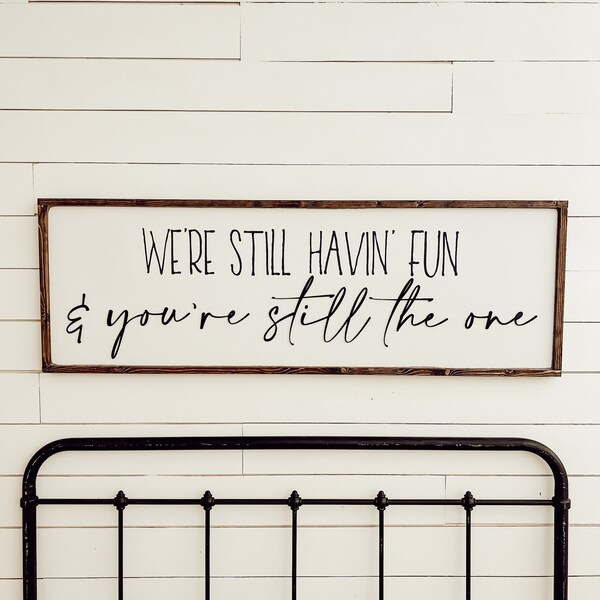 WE'RE STILL HAVIN' FUN
& you're still the one